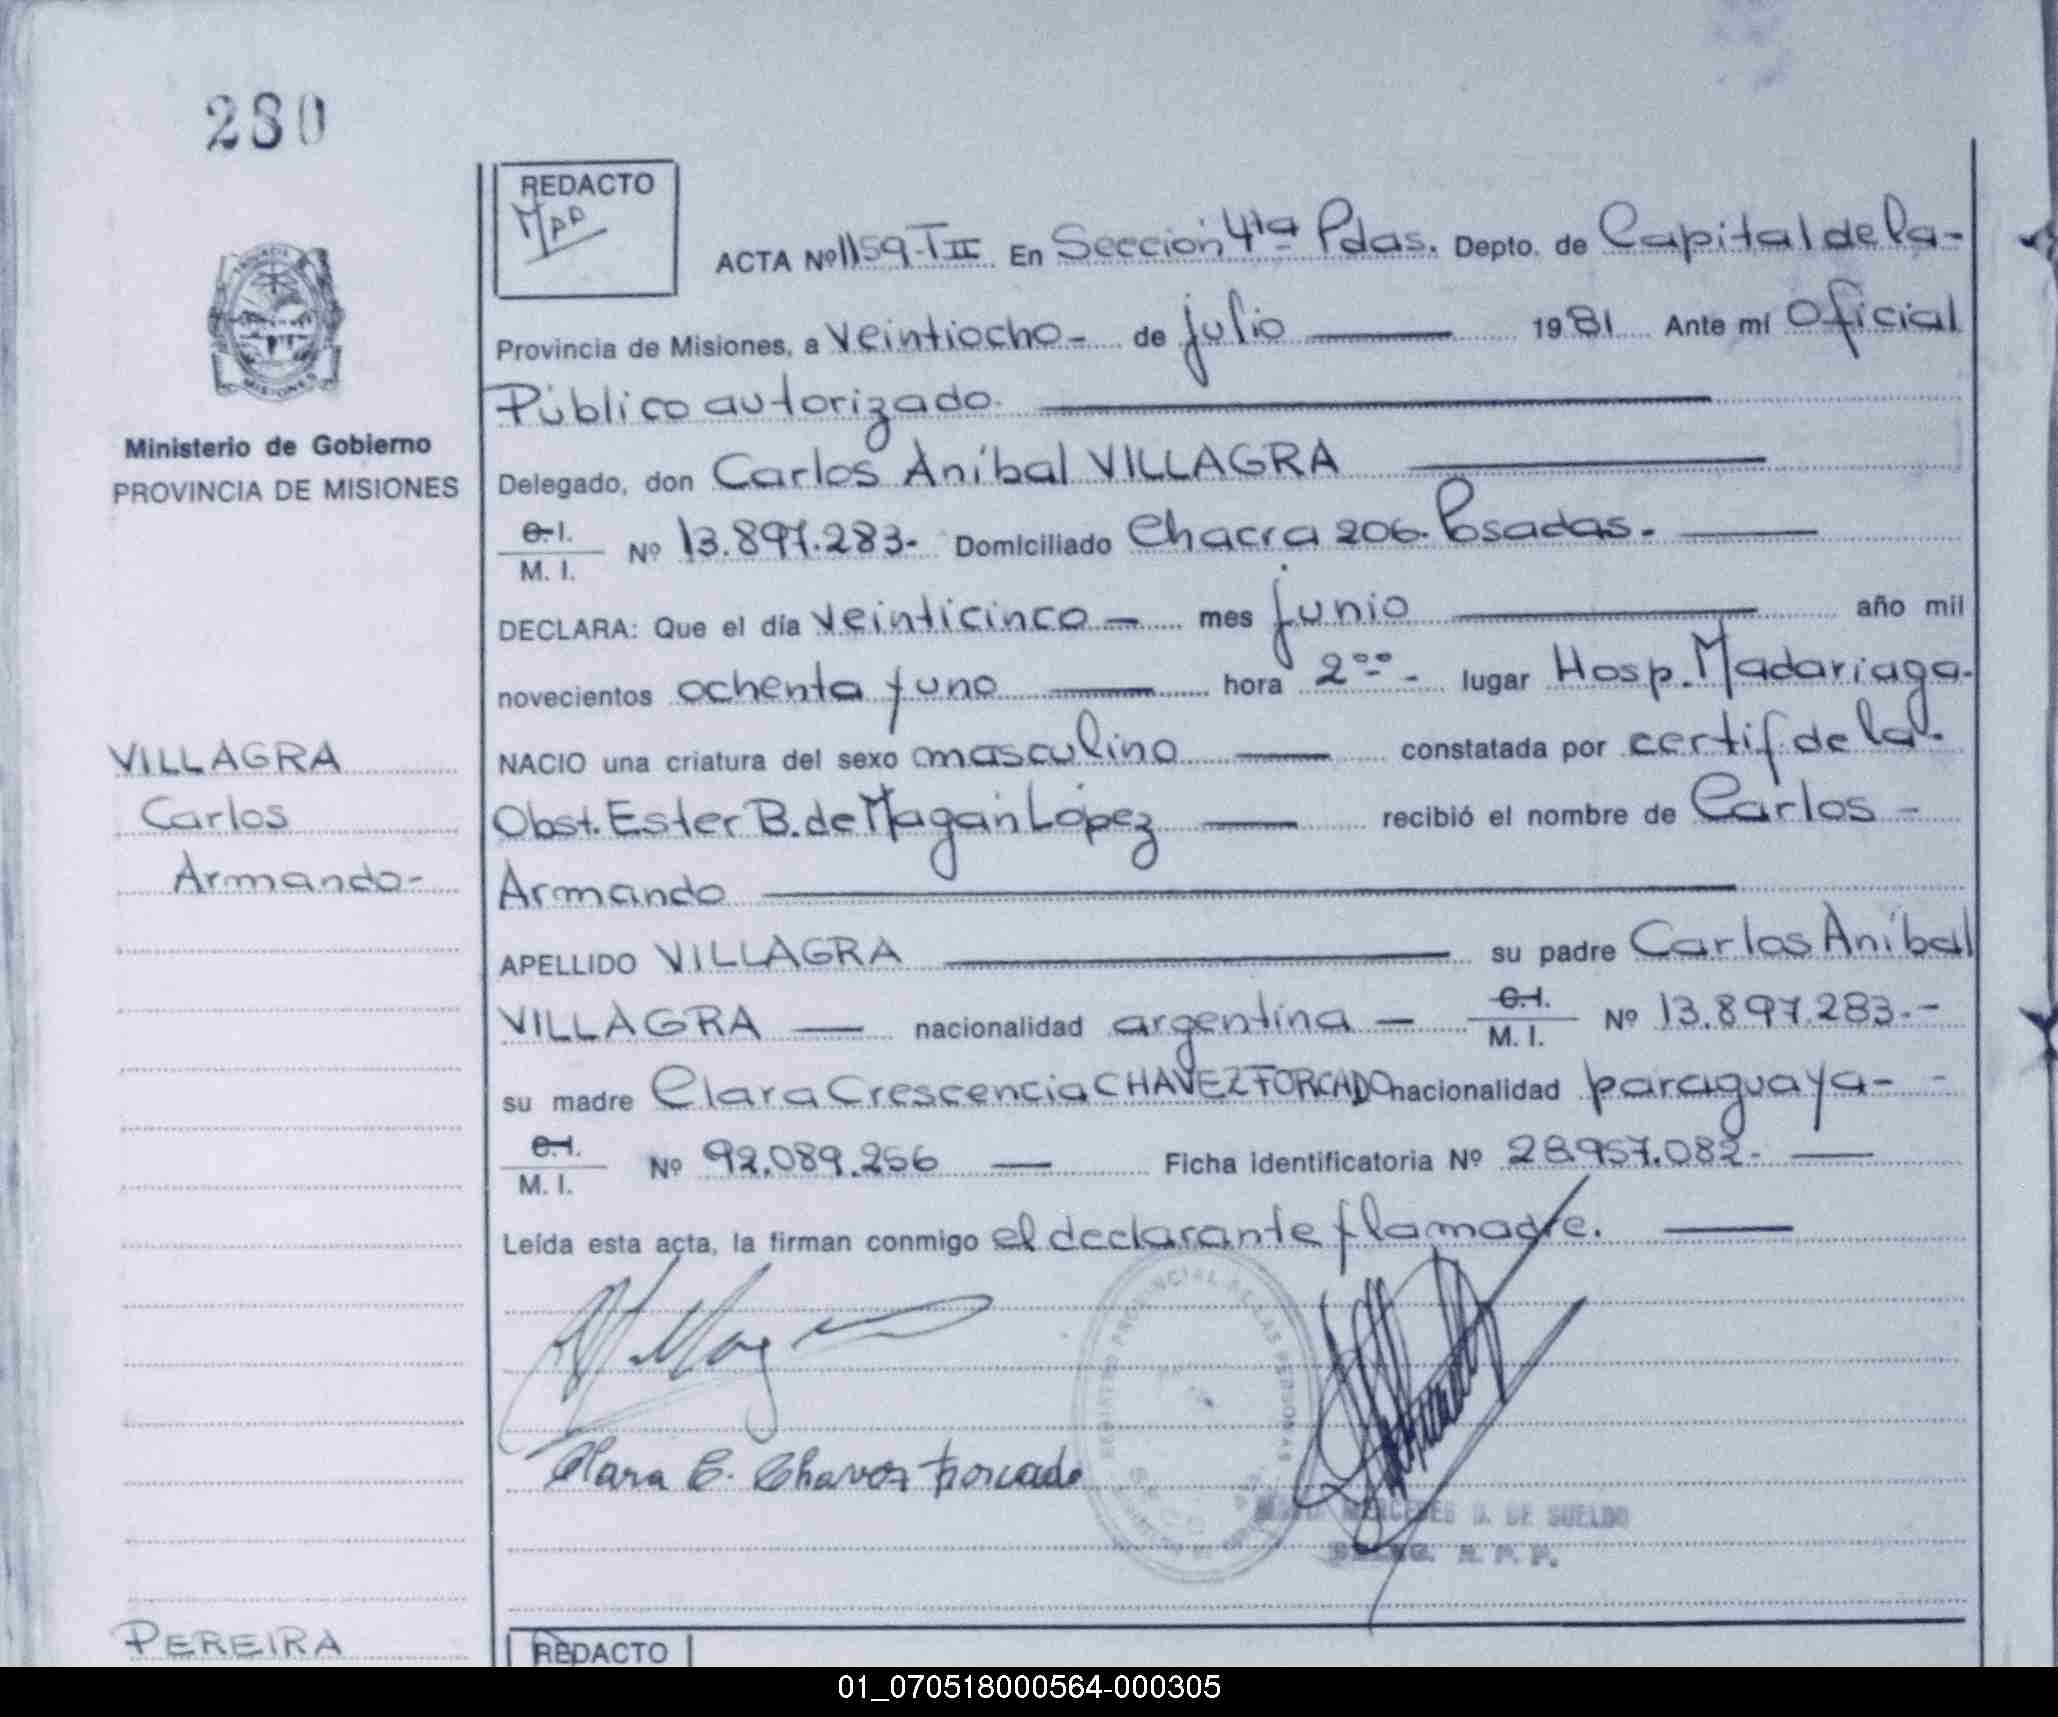 280
REDACTO
MPP
ACTA Nº 1159-TII En Sección 4ta Pdas. Depto. de Capital de la-
Provincia de Misiones, a veintiocho- de julio 1981 Ante mí Oficial
Público autorizado.
Ministerio de Gobierno
PROVINCIA DE MISIONES
Delegado, don Carlos Aníbal VILLAGRA
C. I.
M. I.
Nº 13.897.283- Domiciliado Chacra 206. Posadas.-
DECLARA: Que el día veinticinco- mes junio año mil
novecientos ochenta y uno hora 2°°- lugar Hosp. Madariaga.
VILLAGRA
NACIO una criatura del sexo masculino constatada por certif. de la.
Carlos
Obst. Ester B. de Magán López recibió el nombre de Carlos -
Armando-
Armando
APELLIDO VILLAGRA su padre Carlos Aníbal
VILLAGRA — nacionalidad argentina — C. I. M. I. Nº 13.897.283.-
su madre Clara Crescencia CHAVEZ FORCADO nacionalidad paraguaya-
C. I.
M. I.
Nº 92.089.256 — Ficha identificatoria Nº 28.957.082.-
Leída esta acta, la firman conmigo el declarante y la madre.
Clara C. Chavez Forcado
REGISTRO PROVINCIAL DE LAS PERSONAS
MERCEDES D. DE SUELDO
R. P. P.
PEREIRA
REDACTO
01_070518000564-000305